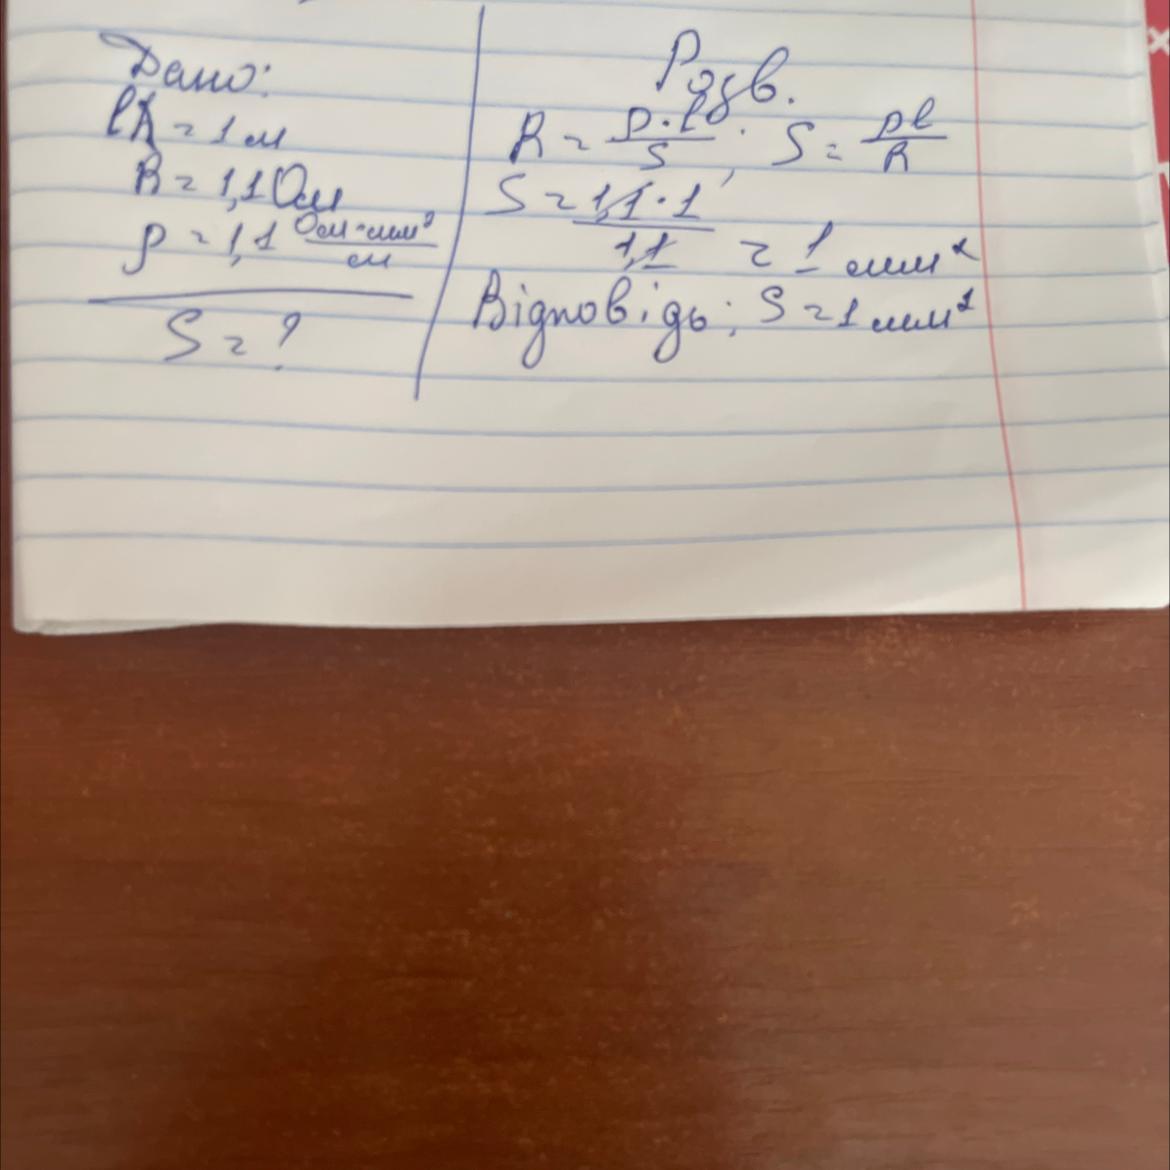 Дано:
l = 1 м
R = 1,1 Ом
ρ = 1,1 Ом·мм²/м
S = ?
Розв.
R = ρ·l/S; S = ρl/R
S = 1,1·1/1,1 = 1 мм²
Відповідь: S = 1 мм²